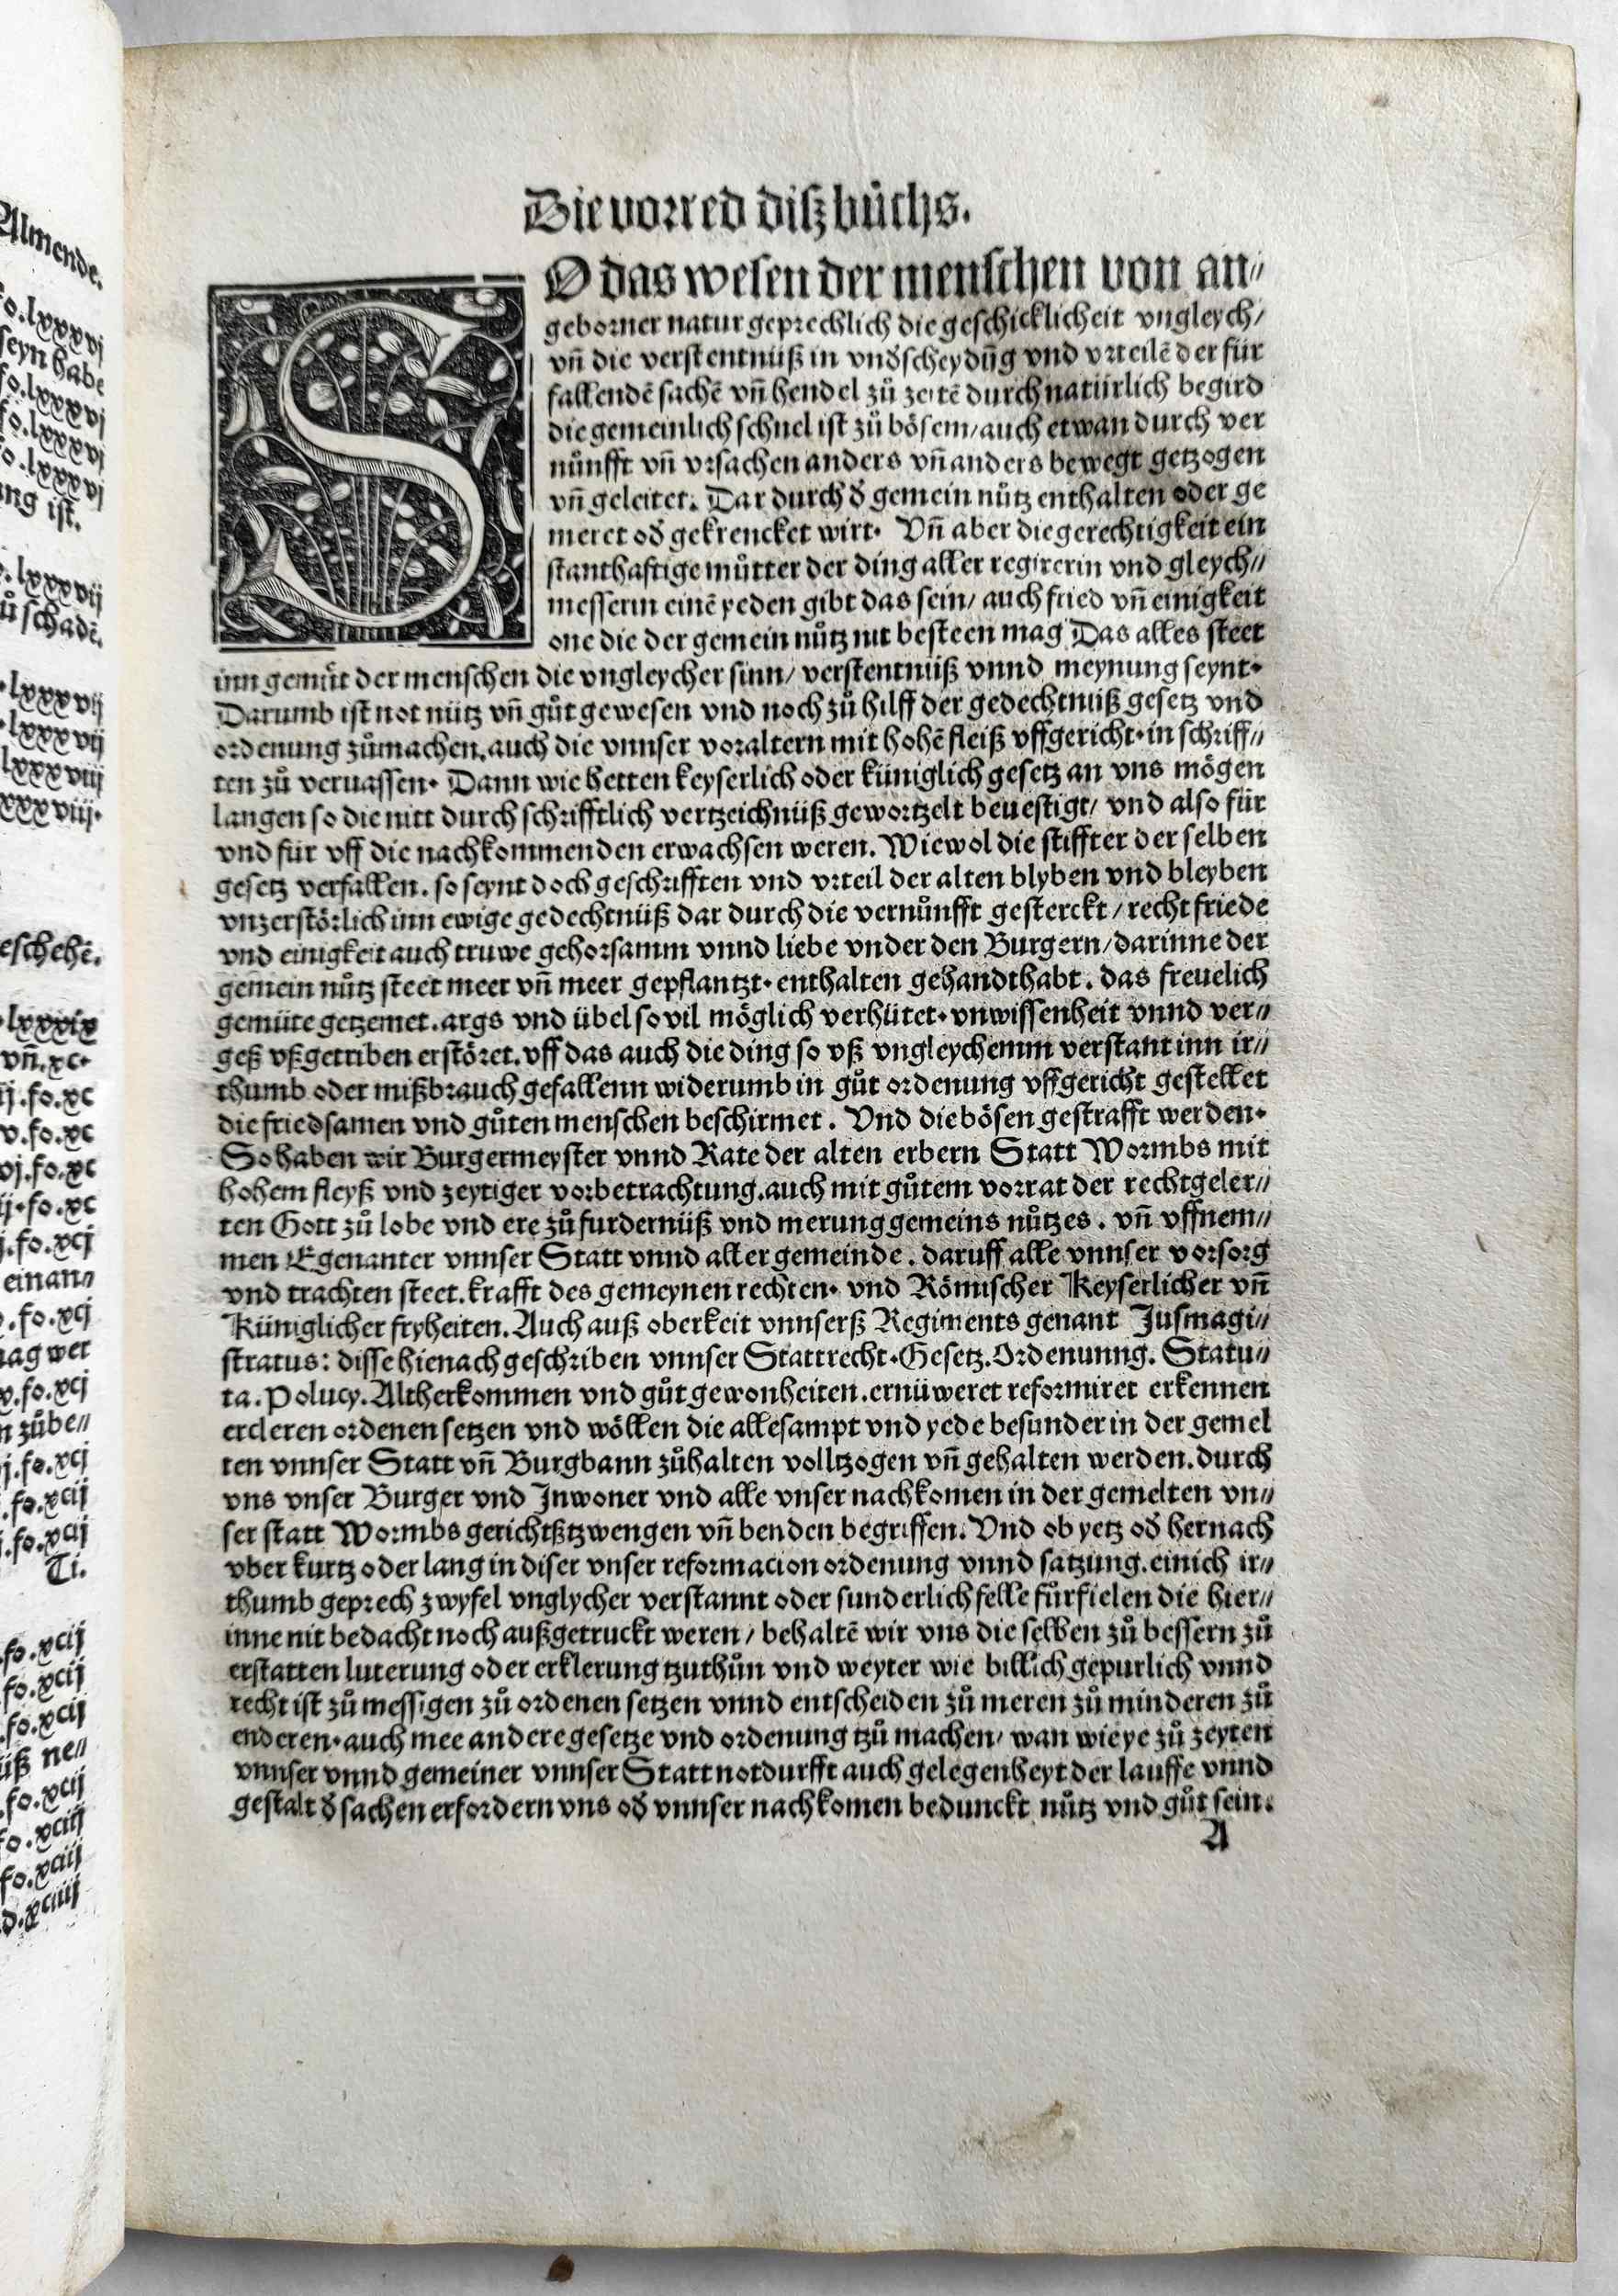 Almende.
fo.lxxxvj
seyn habe
fo.lxxxvj
fo.lxxxvj
o.lxxxvj
ung ist.
.lxxxvij
ů schadē.
.lxxxvij
.lxxxvij
lxxxviij
xxxviij.
eschehē.
.lxxxix
vñ.xc.
ij.fo.xc
v.fo.xc
vj.fo.xc
ij.fo.xc
j.fo.xcj
einan⸗
.fo.xcj
mag wer
v.fo.xcj
n zůbe⸗
j.fo.xcj
.fo.xcij
j.fo.xcij
Ti.
.fo.xcij
fo.xcij
.fo.xcij
üß ne⸗
.fo.xcij
fo.xciij
fo.xciij
d.xciiij
Die vorred disz bůchs.
SO das wesen der menschen von an⸗
geborner natur geprechlich die geschicklicheit vngleych/
vñ die verstentnüß in vnd̕scheydūg vnd vrteilē der für
fallendē sachē vñ hendel zů zeitē durch natürlich begird
die gemeinlich schnel ist zů bösem/auch etwan durch ver
nůnfft vñ vrsachen anders vñ anders bewegt getzogen
vñ geleitet. Dar durch d̕ gemein nůtz enthalten oder ge
meret od̕ gekrencket wirt. Vñ aber die gerechtigkeit ein
stanthaftige můtter der ding aller regirerin vnd gleych⸗
messerin einē yeden gibt das sein/ auch fried vñ einigkeit
one die der gemein nůtz nit besteen mag Das alles steet
inn gemüt der menschen die vngleycher sinn/ verstentnüß vnnd meynung seynt.
Darumb ist not nütz vñ gůt gewesen vnd noch zů hilff der gedechtnüß gesetz vnd
ordenung zůmachen.auch die vnnser voraltern mit hohē fleiß vffgericht.in schriff⸗
ten zů veruassen. Dann wie hetten keyserlich oder küniglich gesetz an vns mögen
langen so die nitt durch schrifftlich vertzeichnüß gewortzelt beuestigt/ vnd also für
vnd für vff die nachkommenden erwachsen weren. Wiewol die stiffter der selben
gesetz verfallen. so seynt doch geschrifften vnd vrteil der alten blyben vnd bleyben
vnzerstörlich inn ewige gedechtnüß dar durch die vernůnfft gesterckt/ recht friede
vnd einigkeit auch truwe gehorsamm vnnd liebe vnder den Burgern/darinne der
gemein nůtz steet meer vñ meer gepflantzt. enthalten gehandthabt. das freuelich
gemüte getzemet.args vnd übel so vil möglich verhütet.vnwissenheit vnnd ver⸗
geß vßgetriben erstöret.vff das auch die ding so vß vngleychemm verstant inn ir⸗
thumb oder mißbrauch gefallenn widerumb in gůt ordenung vffgericht gestellet
die friedsamen vnd gůten menschen beschirmet. Vnd die bösen gestrafft werden.
So haben wir Burgermeyster vnnd Rate der alten erbern Statt Wormbs mit
hohem fleyß vnd zeytiger vorbetrachtung.auch mit gůtem vorrat der rechtgeler⸗
ten Gott zů lobe vnd ere zů furdernüß vnd merung gemeins nůtzes. vñ vffnem⸗
men Egenanter vnnser Statt vnnd aller gemeinde. daruff alle vnnser vorsorg
vnd trachten steet.krafft des gemeynen rechten. vnd Römischer Keyserlicher vñ
Küniglicher fryheiten. Auch auß oberkeit vnnserß Regiments genant Jusmagi⸗
stratus: disse hienach geschriben vnnser Stattrecht.Gesetz.Ordenunng. Statu⸗
ta. Policy. Altherkommen vnd gůt gewonheiten.ernüweret reformiret erkennen
ercleren ordenen setzen vnd wöllen die allesampt vnd yede besunder in der gemel
ten vnnser Statt vñ Burgbann zůhalten volltzogen vñ gehalten werden.durch
vns vnser Burger vnd Jnwoner vnd alle vnser nachkomen in der gemelten vn⸗
ser statt Wormbs gerichtßtzwengen vñ benden begriffen. Vnd ob yetz od̕ hernach
vber kurtz oder lang in diser vnser reformacion ordenung vnnd satzung.einich ir⸗
thumb geprech zwyfel vnglycher verstannt oder sunderlich felle fůrfielen die hier⸗
inne nit bedacht noch außgetruckt weren/ behaltē wir vns die selben zů bessern zů
erstatten luterung oder erklerung tzuthůn vnd weyter wie billich gepurlich vnnd
recht ist zů messigen zů ordenen setzen vnnd entscheiden zů meren zů minderen zů
enderen.auch mee andere gesetze vnd ordenung tzů machen/ wan wie ye zů zeyten
vnnser vnnd gemeiner vnnser Statt notdurfft auch gelegenheyt der lauffe vnnd
gestalt d̕ sachen erfordern vns od̕ vnnser nachkomen bedunckt nůtz vnd gůt sein.
A